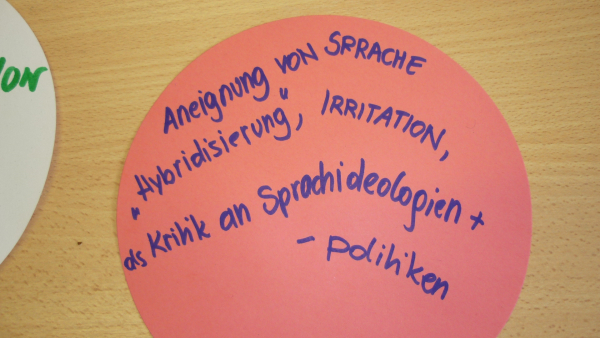 ION
ANEIGNUNG VON SPRACHE
"Hybridisierung", IRRITATION,
als Kritik an Sprachideologien +
- politiken